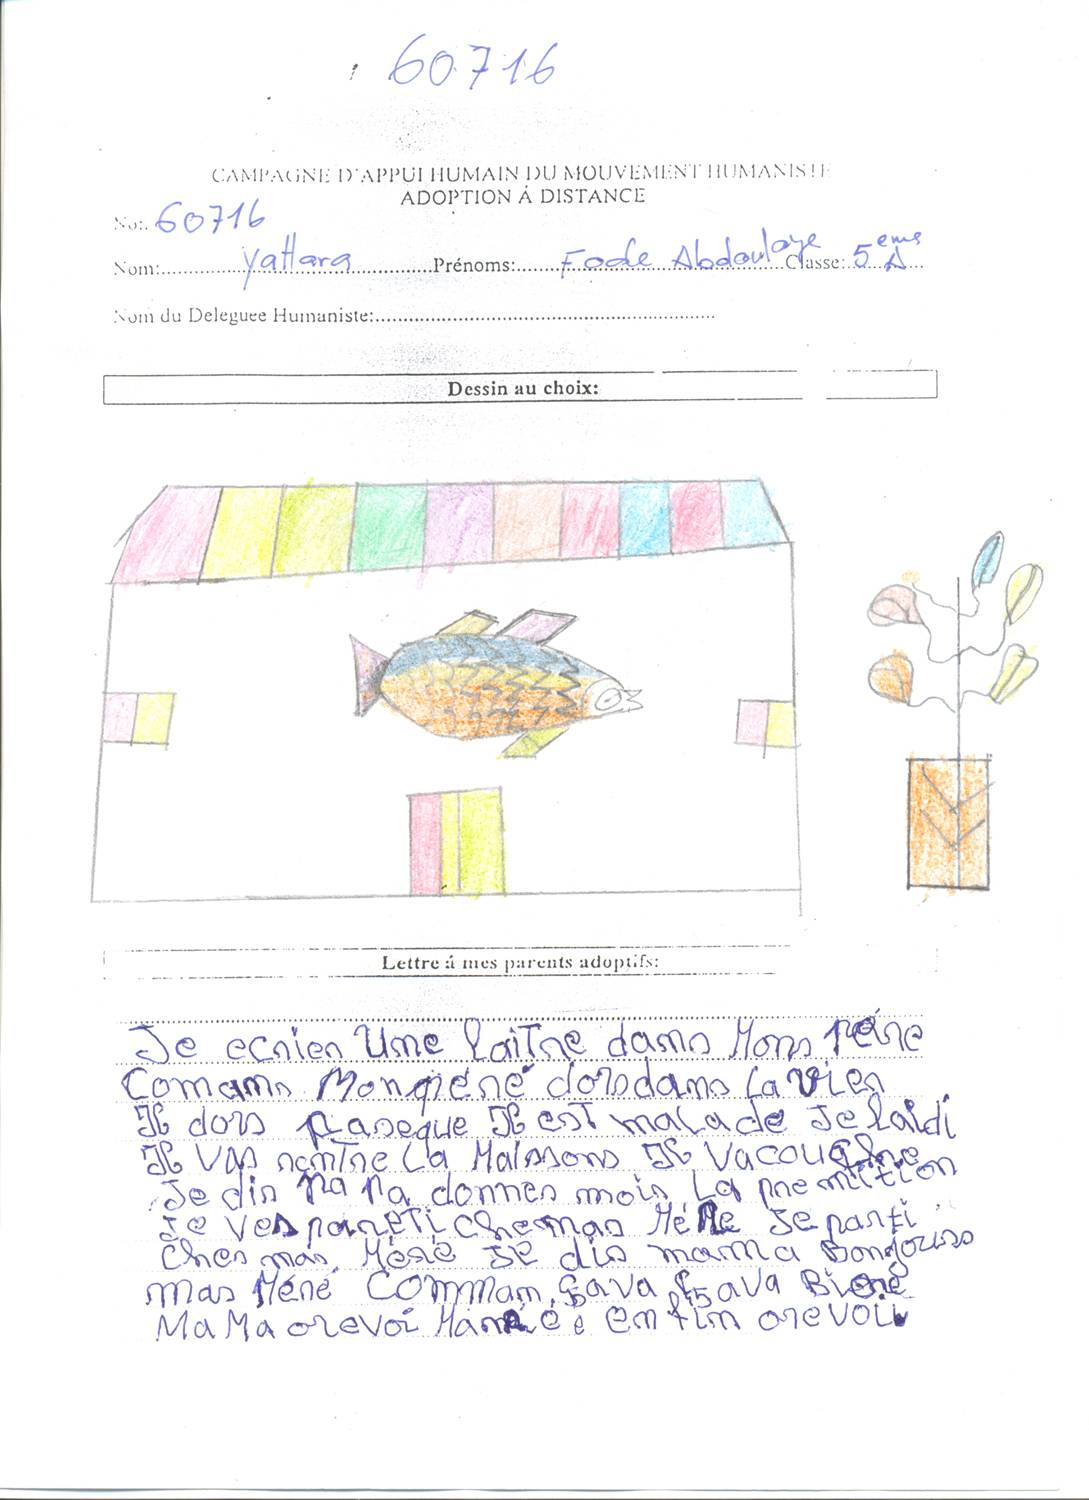 60716
CAMPAGNE D'APPUI HUMAIN DU MOUVEMENT HUMANISTE
ADOPTION Á DISTANCE
No:. 60716
Nom:.....Yattara.....Prénoms:.....Fode Abdoulaye.....Classe:.5 eme A...
Nom du Deleguee Humaniste:..........
Dessin au choix:
Lettre á mes parents adoptifs:
Je ecrien Une laitre dams Mons Pére
Comams Monpéré dorsdams La vien
Il dors Paseque Il est malade Je laidi
Il Vas remtre La Maissons Il Vacouchre
Je dis Pa Pa donner mois La premition
Je ves partti cher mas Mére Je parti
cher mas Méré Je dis mama Bonjours
mas Méré Commam Sava Sava Biené
MaMa orevoi Mamé é em fim orevoir